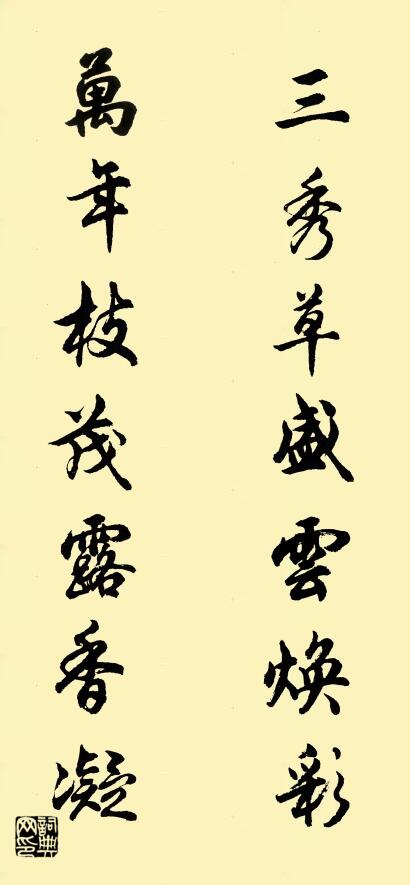 三秀草盛雲煥彩
萬年枝茂露香凝
詞典
网印